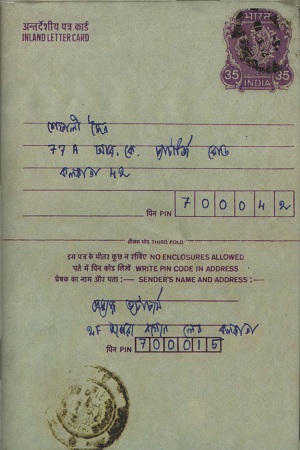 अन्तर्देशीय पत्र कार्ड
INLAND LETTER CARD
भारत
35 35
INDIA
77A আর. কে. চ্যাটার্জি রোড
কলকাতা ৪২
पिन PIN 700042
तीसरा मोड़ THIRD FOLD
इस पत्र के भीतर कुछ न रखिए NO ENCLOSURES ALLOWED
पते में पिन कोड लिखें WRITE PIN CODE IN ADDRESS
प्रेषक का नाम और पता :— SENDER'S NAME AND ADDRESS :—
লেন কলকাতা
पिन PIN 700015